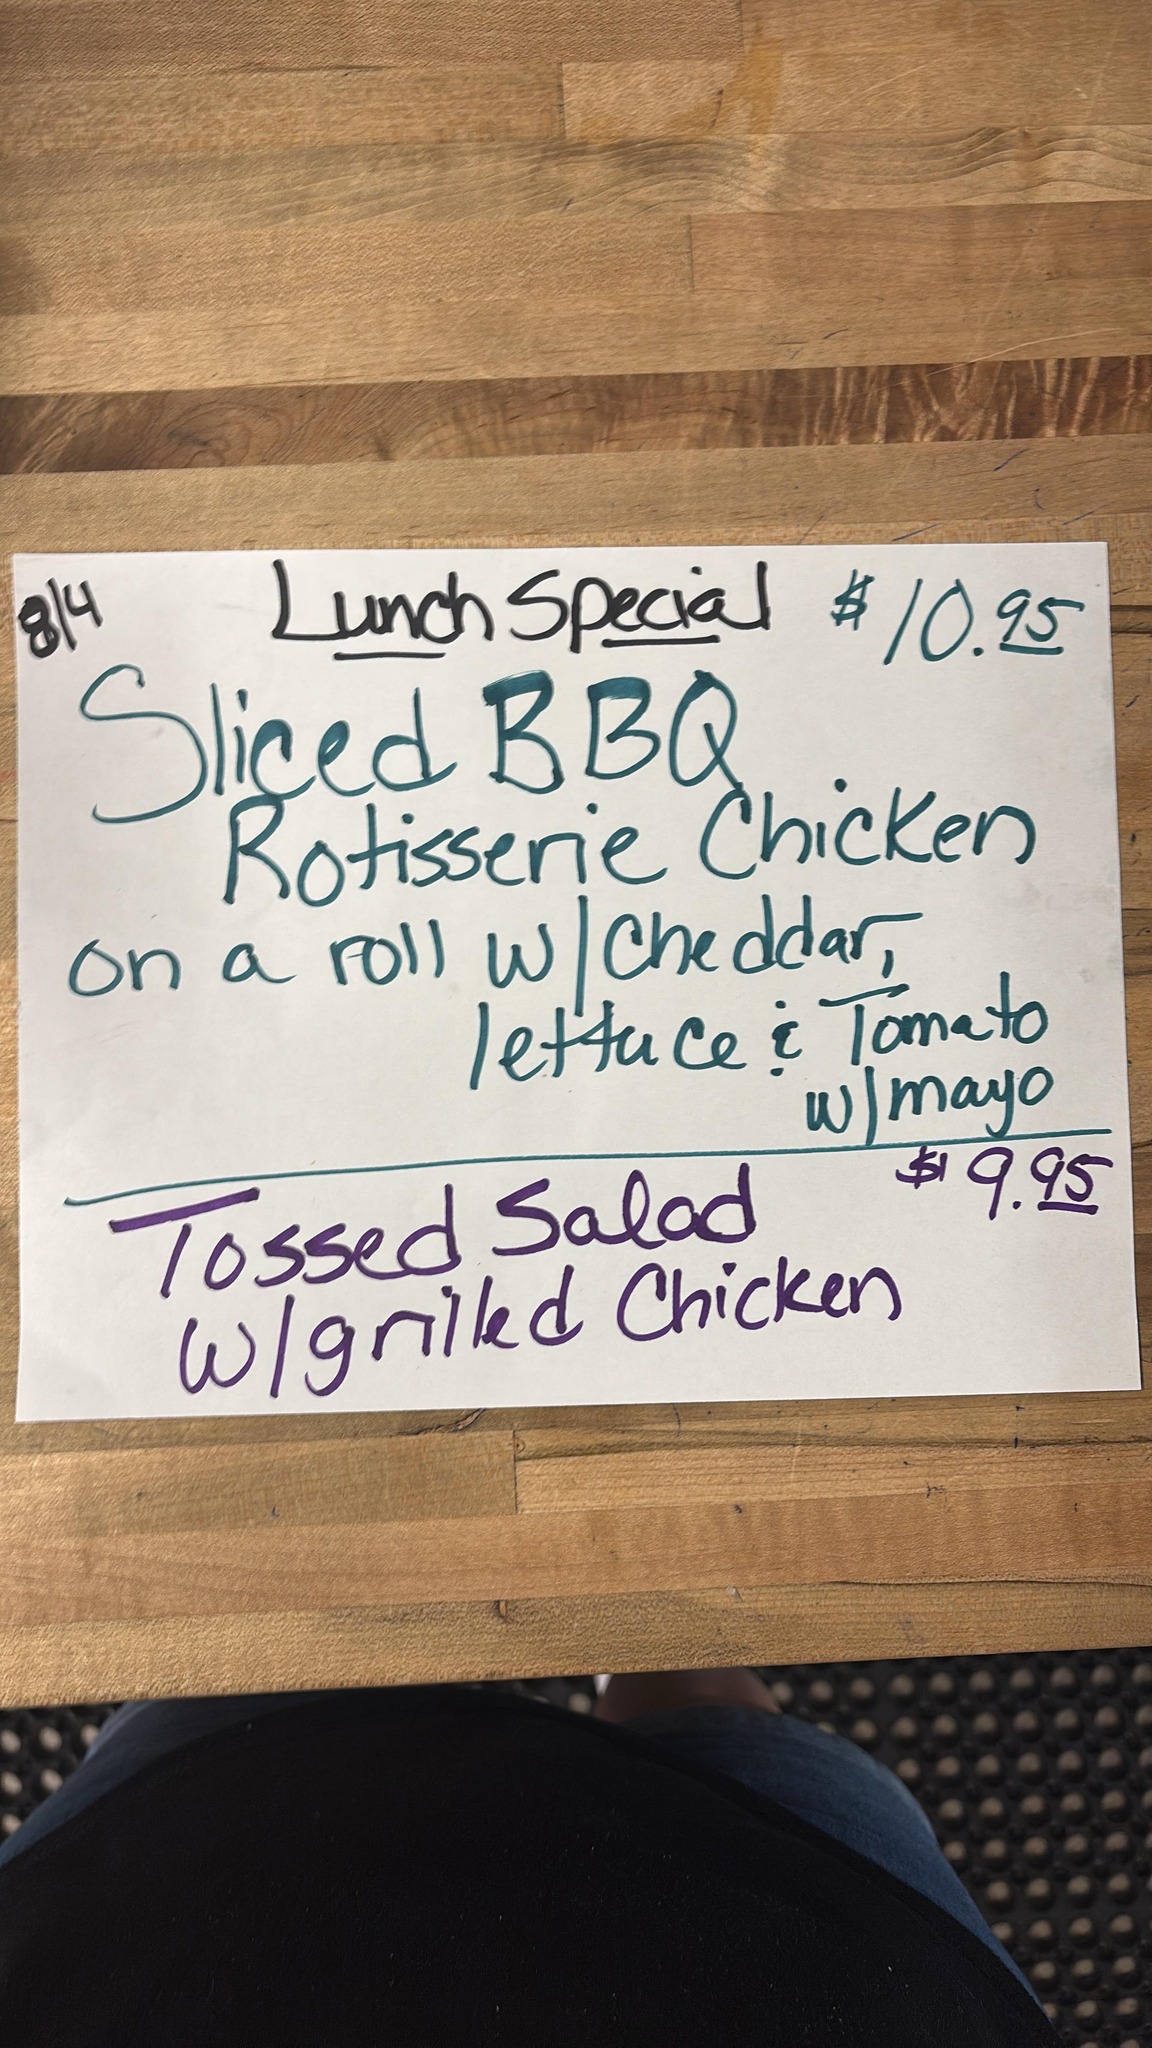 8/4 Lunch Special $10.95
Sliced BBQ
Rotisserie Chicken
on a roll w/cheddar,
lettuce & Tomato
w/mayo
$9.95
Tossed Salad
w/grilled Chicken